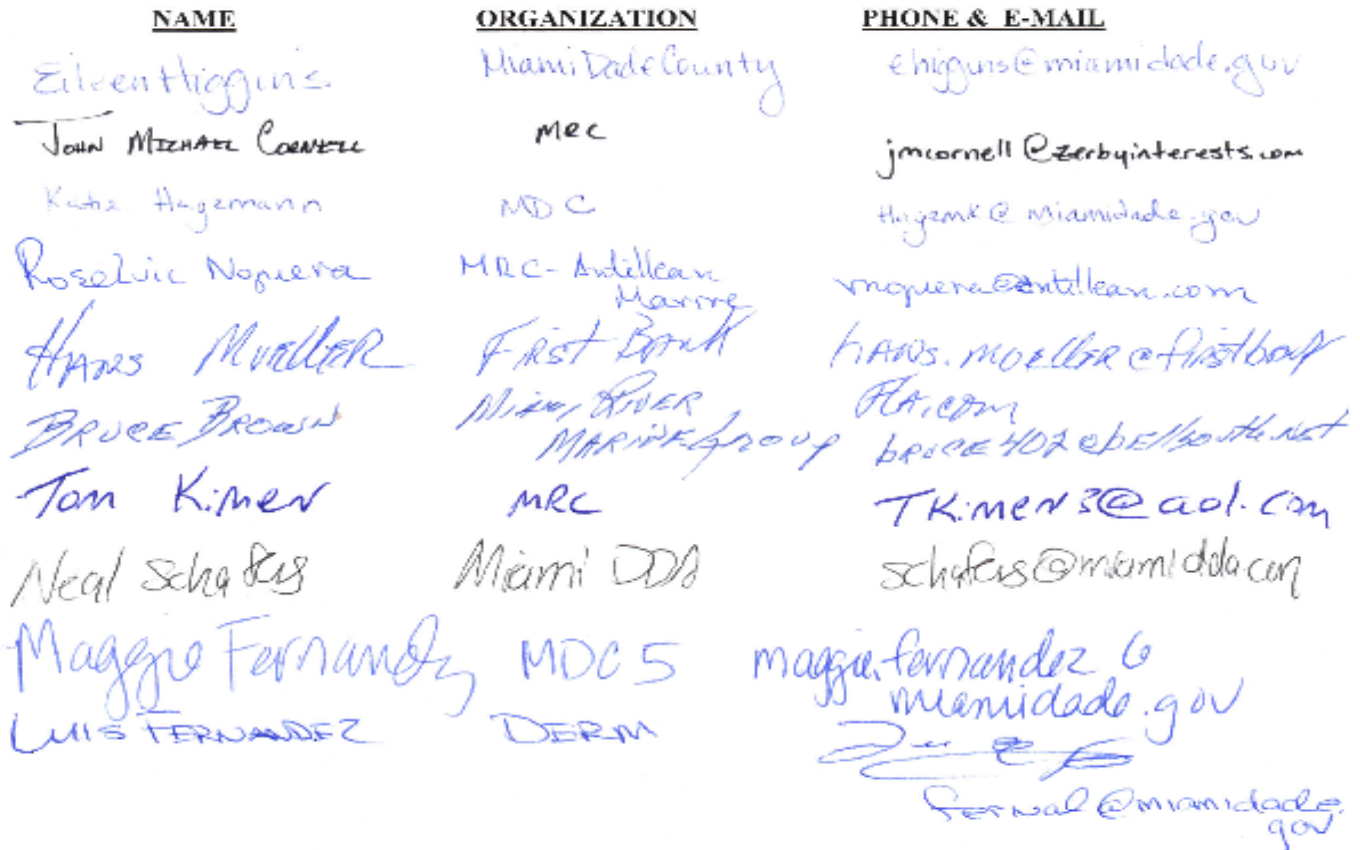 NAME ORGANIZATION PHONE & E-MAIL
Eileen Higgins Miami Dade County ehiggins@miamidade.gov
JOHN MICHAEL CORNELL MRC jmcornell@zerbyinterests.com
Katie Hagemann MDC Hagemk@miamidade.gov
Roselvic Noguera MRC-Antillean
Marine rnoguera@antillean.com
HANS MUELLER FIRST BANK HANS.MUELLER@firstbank
FLA.com
BRUCE BROWN Miami RIVER
MARINE Group bruce402@bellsouth.net
Tom Kimen MRC TKimen3@aol.com
Neal Schafers Miami DDA schafers@miamidda.com
Maggie Fernandez MDC5 maggie.fernandez@
miamidade.gov
LUIS FERNANDEZ DERM
fernal@miamidade.
gov